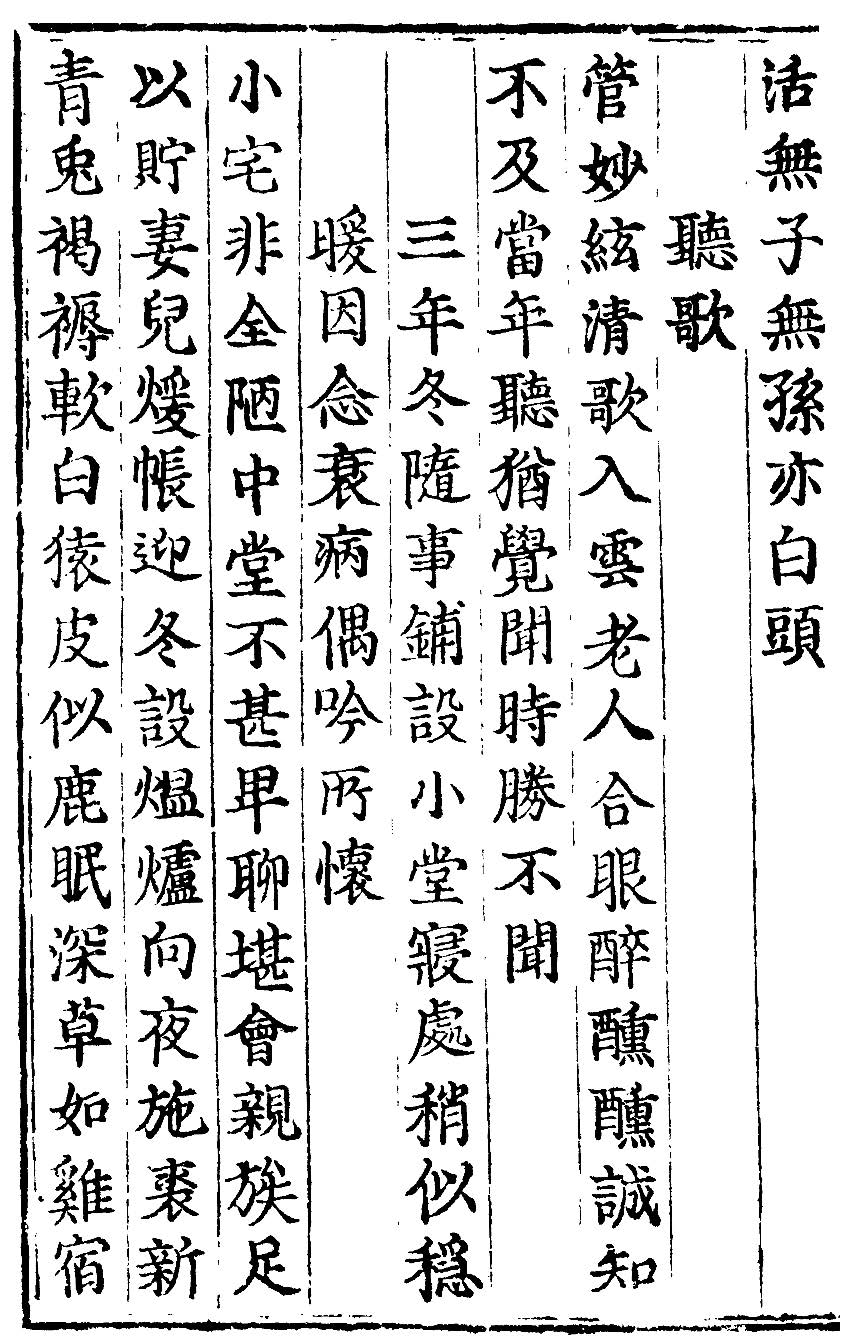 活無子無孫亦白頭
聽歌
管妙絃清歌入雲老人合眼醉醺醺誠知
不及當年聽猶覺聞時勝不聞
三年冬隨事鋪設小堂寢處稍似穩
暖因念衰病偶吟所懷
小宅非全陋中堂不甚卑聊堪會親族足
以貯妻兒煖帳迎冬設熅爐向夜施裘新
青兎褐褥軟白猿皮似鹿眠深草如雞宿